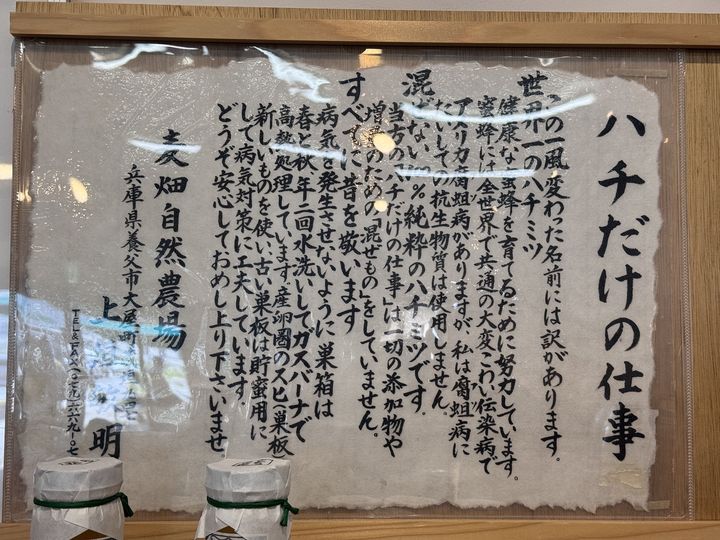 ハチだけの仕事
この一風変わった名前には訳があります。
世界一のハチミツ
健康な蜜蜂を育てるために努力しています。
蜜蜂には全世界で共通の大変こわい伝染病で
アメリカ腐蛆病がありますが、私は腐蛆病に
たいしての抗生物質は使用しません。
混ぜない 純粋のハチミツです。
当店の「ハチだけの仕事」は一切の添加物や
増量のための「混ぜもの」をしていません。
すべてに昔を敬います
病気を発生させないように巣箱は
春と秋、年二回水洗いしてガスバーナで
高熱処理しています。産卵圏のスヒ(巣板
新しいものを使い古い巣板は貯蜜用に
して病気対策に工夫しています。
どうぞ安心しておめし上り下さいませ
麦畑自然農場
兵庫県養父市大屋町
上 明
TEL&FAX